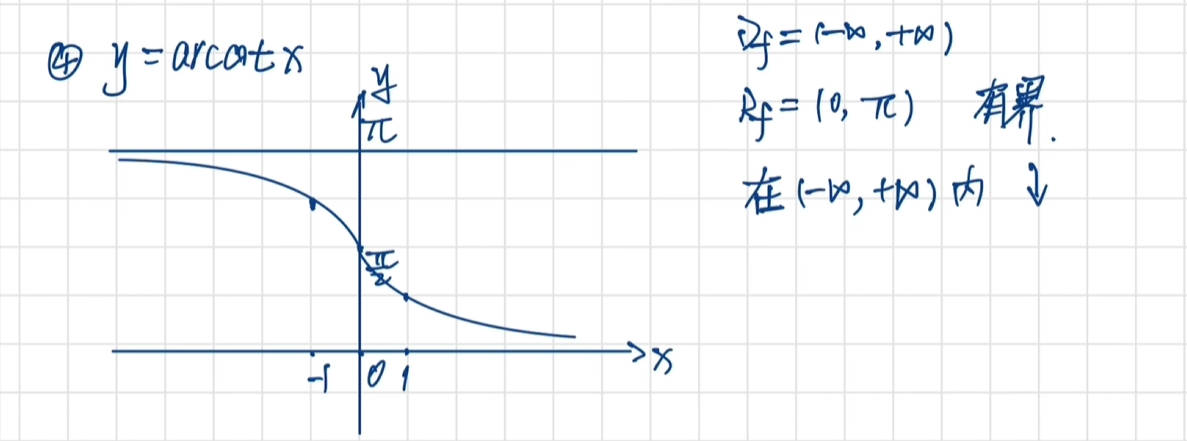 ④ y=arccotx
y
π
π/2
-1 0 1 x
Df=(-∞,+∞)
Rf=(0,π) 有界.
在(-∞,+∞)内 ↓